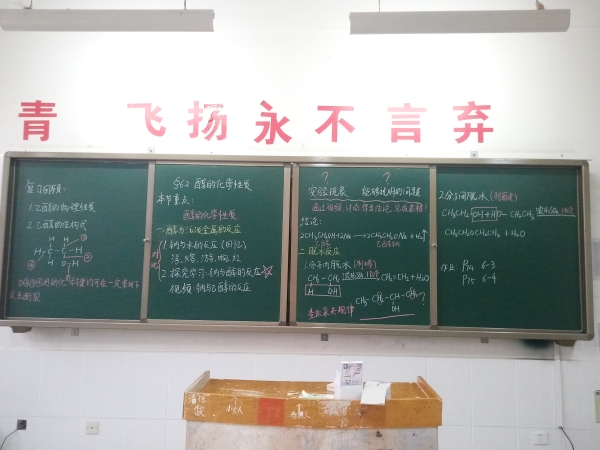 青 飞扬永不言弃
复习回顾:
1.乙醇的物理性质
2.乙醇的结构式
H H
H-C-C-H
H O-H
§6.2 醇的化学性质
本节重点:
醇的化学性质
一.醇与活泼金属的反应
1.钠与水的反应(回忆)
浮、熔、游、响、红
2.探究学习:钠与乙醇的反应
视频:钠与乙醇的反应
? ?
实验现象 能够说明的问题
结论:
2CH₃CH₂OH+2Na→2CH₃CH₂ONa+H₂↑
二.脱水反应
1.分子内脱水(制烯)
CH₂-CH₂ 浓H₂SO₄ 170℃ CH₂=CH₂+H₂O
H OH
CH₃-CH₂-CH-CH₃ ?
OH
查依采夫规律
2.分子间脱水(制醚)
CH₃CH₂OH+HO-CH₂CH₃ 浓H₂SO₄ 140℃
CH₃CH₂OCH₂CH₃+H₂O
作业: P14 6-3
P15 6-4